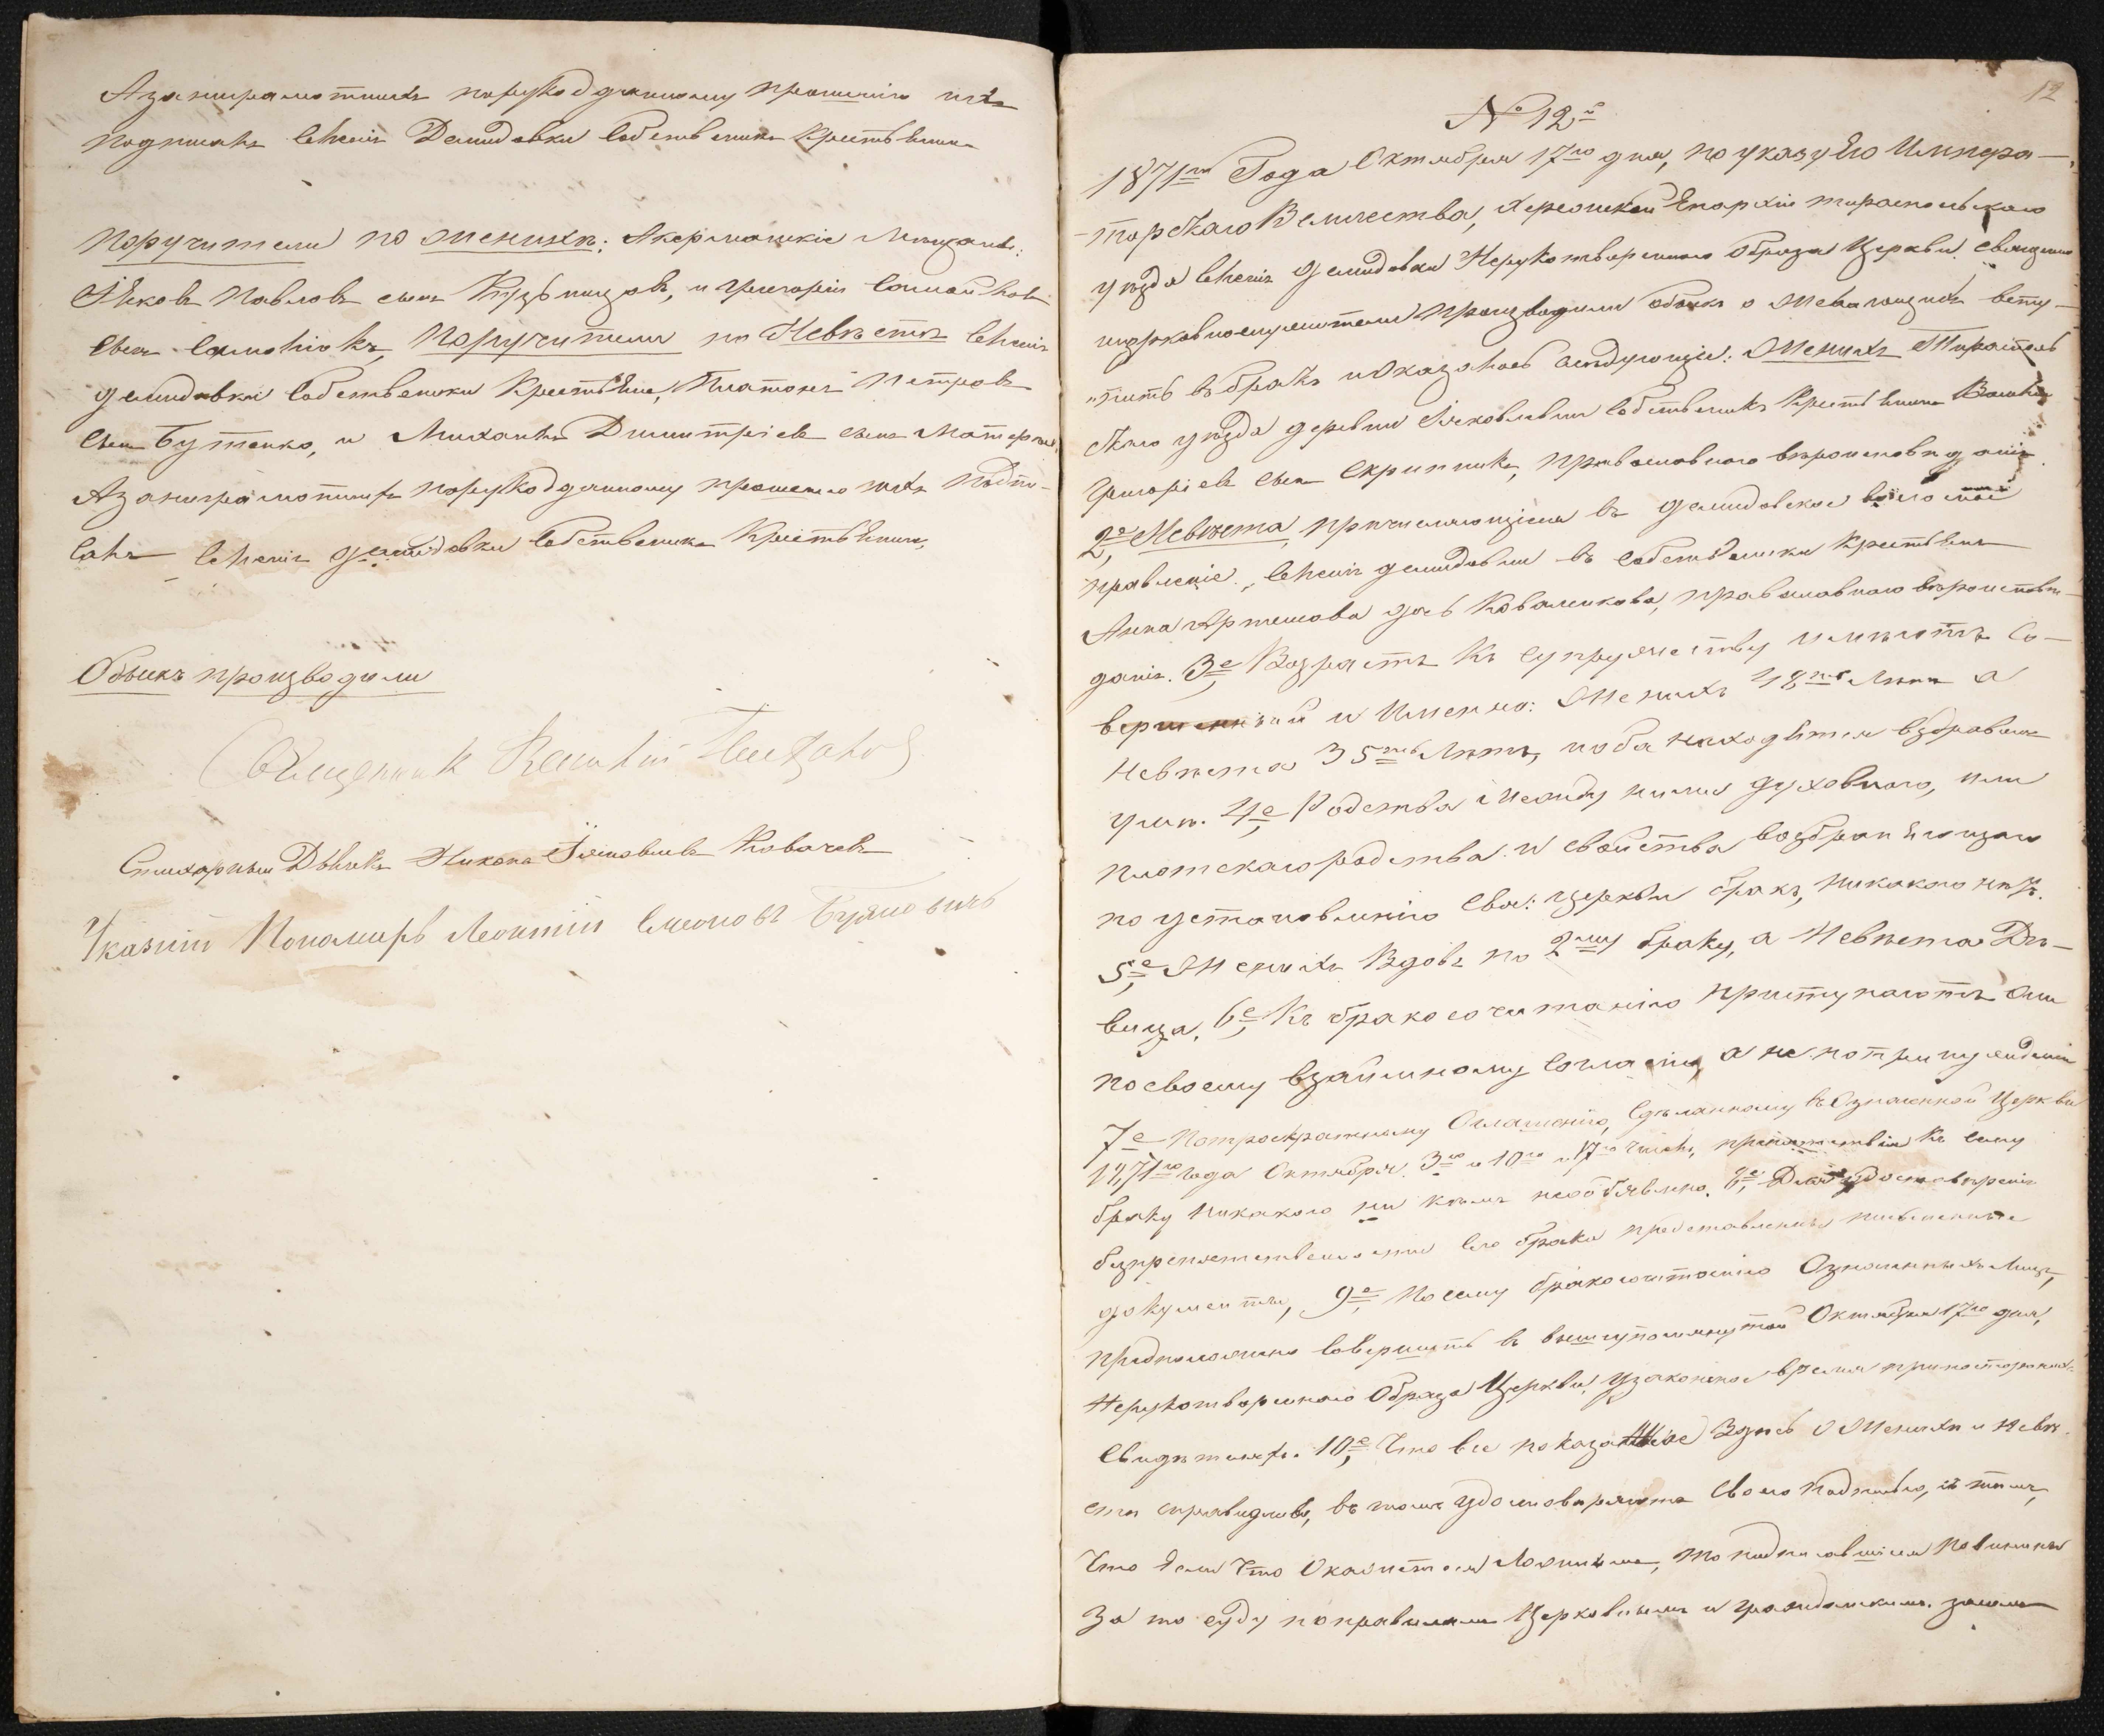 А занеграмотныхъ порукоданному прошенію ихъ
подписалъ селенія Демидовки собственикъ крестьянинъ
Поручители по женихѣ: Акерманскіе мещане:
Яковъ Павловъ сынъ Кузьницовъ, и Григорій
сынъ Поручители по невѣстѣ селенія
демидовки собственики крестьяне, Платонъ Петровъ
сынъ Бутенко, и Михаилъ Димитріевъ сынъ
А занеграмотныхъ порукоданному прошенію ихъ подпи-
салъ селенія демидовки собственикъ крестьянинъ,
Обыскъ производили
Священникъ Василій
Стихарный Дьячокъ Никона Яковлевъ Ковачевъ
Указный Пономарь Леонтій Симоновъ
12
№ 12й
1871го Года Октября 17го дня, по указу Его Импера-
торскаго Величества, Херсонской Епархіи тираспольскаго
уѣзда селенія демидовки Нерукотвореннаго Образа Церкви, священно
церковнослужители производили обыскъ о желающихъ всту-
пить въ бракъ и оказалось слѣдующее: Женихъ Тирасполь
скаго уѣзда деревни Яковлевки собственикъ крестьянинъ
Григоріевъ сынъ Скрипникъ, православнаго вѣроисповѣданія
2е, Невѣста, причисляющаяся въ демидовское волосное
правленіе, селенія демидовки въ собственики крестьянъ
Анна Артемова дочь Коваленкова, православнаго вѣроисповѣ-
данія. 3е, Возрастъ къ супружеству имѣютъ со-
вершенный и именно: Женихъ 48мь лѣтъ а
невѣста 35ть лѣтъ, и оба находятся въ здравомъ
умѣ. 4е, Родства между ними духовнаго, или
плотскаго родства и свойства возбраняющаго
по установленію свя: церкви бракъ, никакого нѣтъ.
5е, Женихъ Вдовъ по 2му браку, а невѣста Дѣ-
вица. 6е, Къ бракосочитанію приступаютъ они
по своему взаимному согласію, а не по принужденію
7е По троекратному Оглашенію, сдѣланному въ Означенной Церкви
1871го года Октября 3го и 10го и 17го числъ, препятствія къ сему
браку никакого ни кѣмъ необъявлено. 8е, Для удостовѣренія
безпрепятственности сего брака представлены письменные
документы, 9е, Посему бракосочитаніе Означенныхъ лицъ,
предположено совершить въ вышеупомянутой Октября 17го дня,
Нерукотвореннаго Образа Церкви, узаконеное время при постороннихъ
свидѣтеляхъ. 10е, Что все показанное здѣсь о женихѣ и невѣ
стѣ справедливо, въ томъ удостовѣряютъ своею подписью, съ тѣмъ,
что если что окажется ложнымъ, то подписавшіеся повинны
за то суду по правиламъ Церковнымъ и гражданскимъ